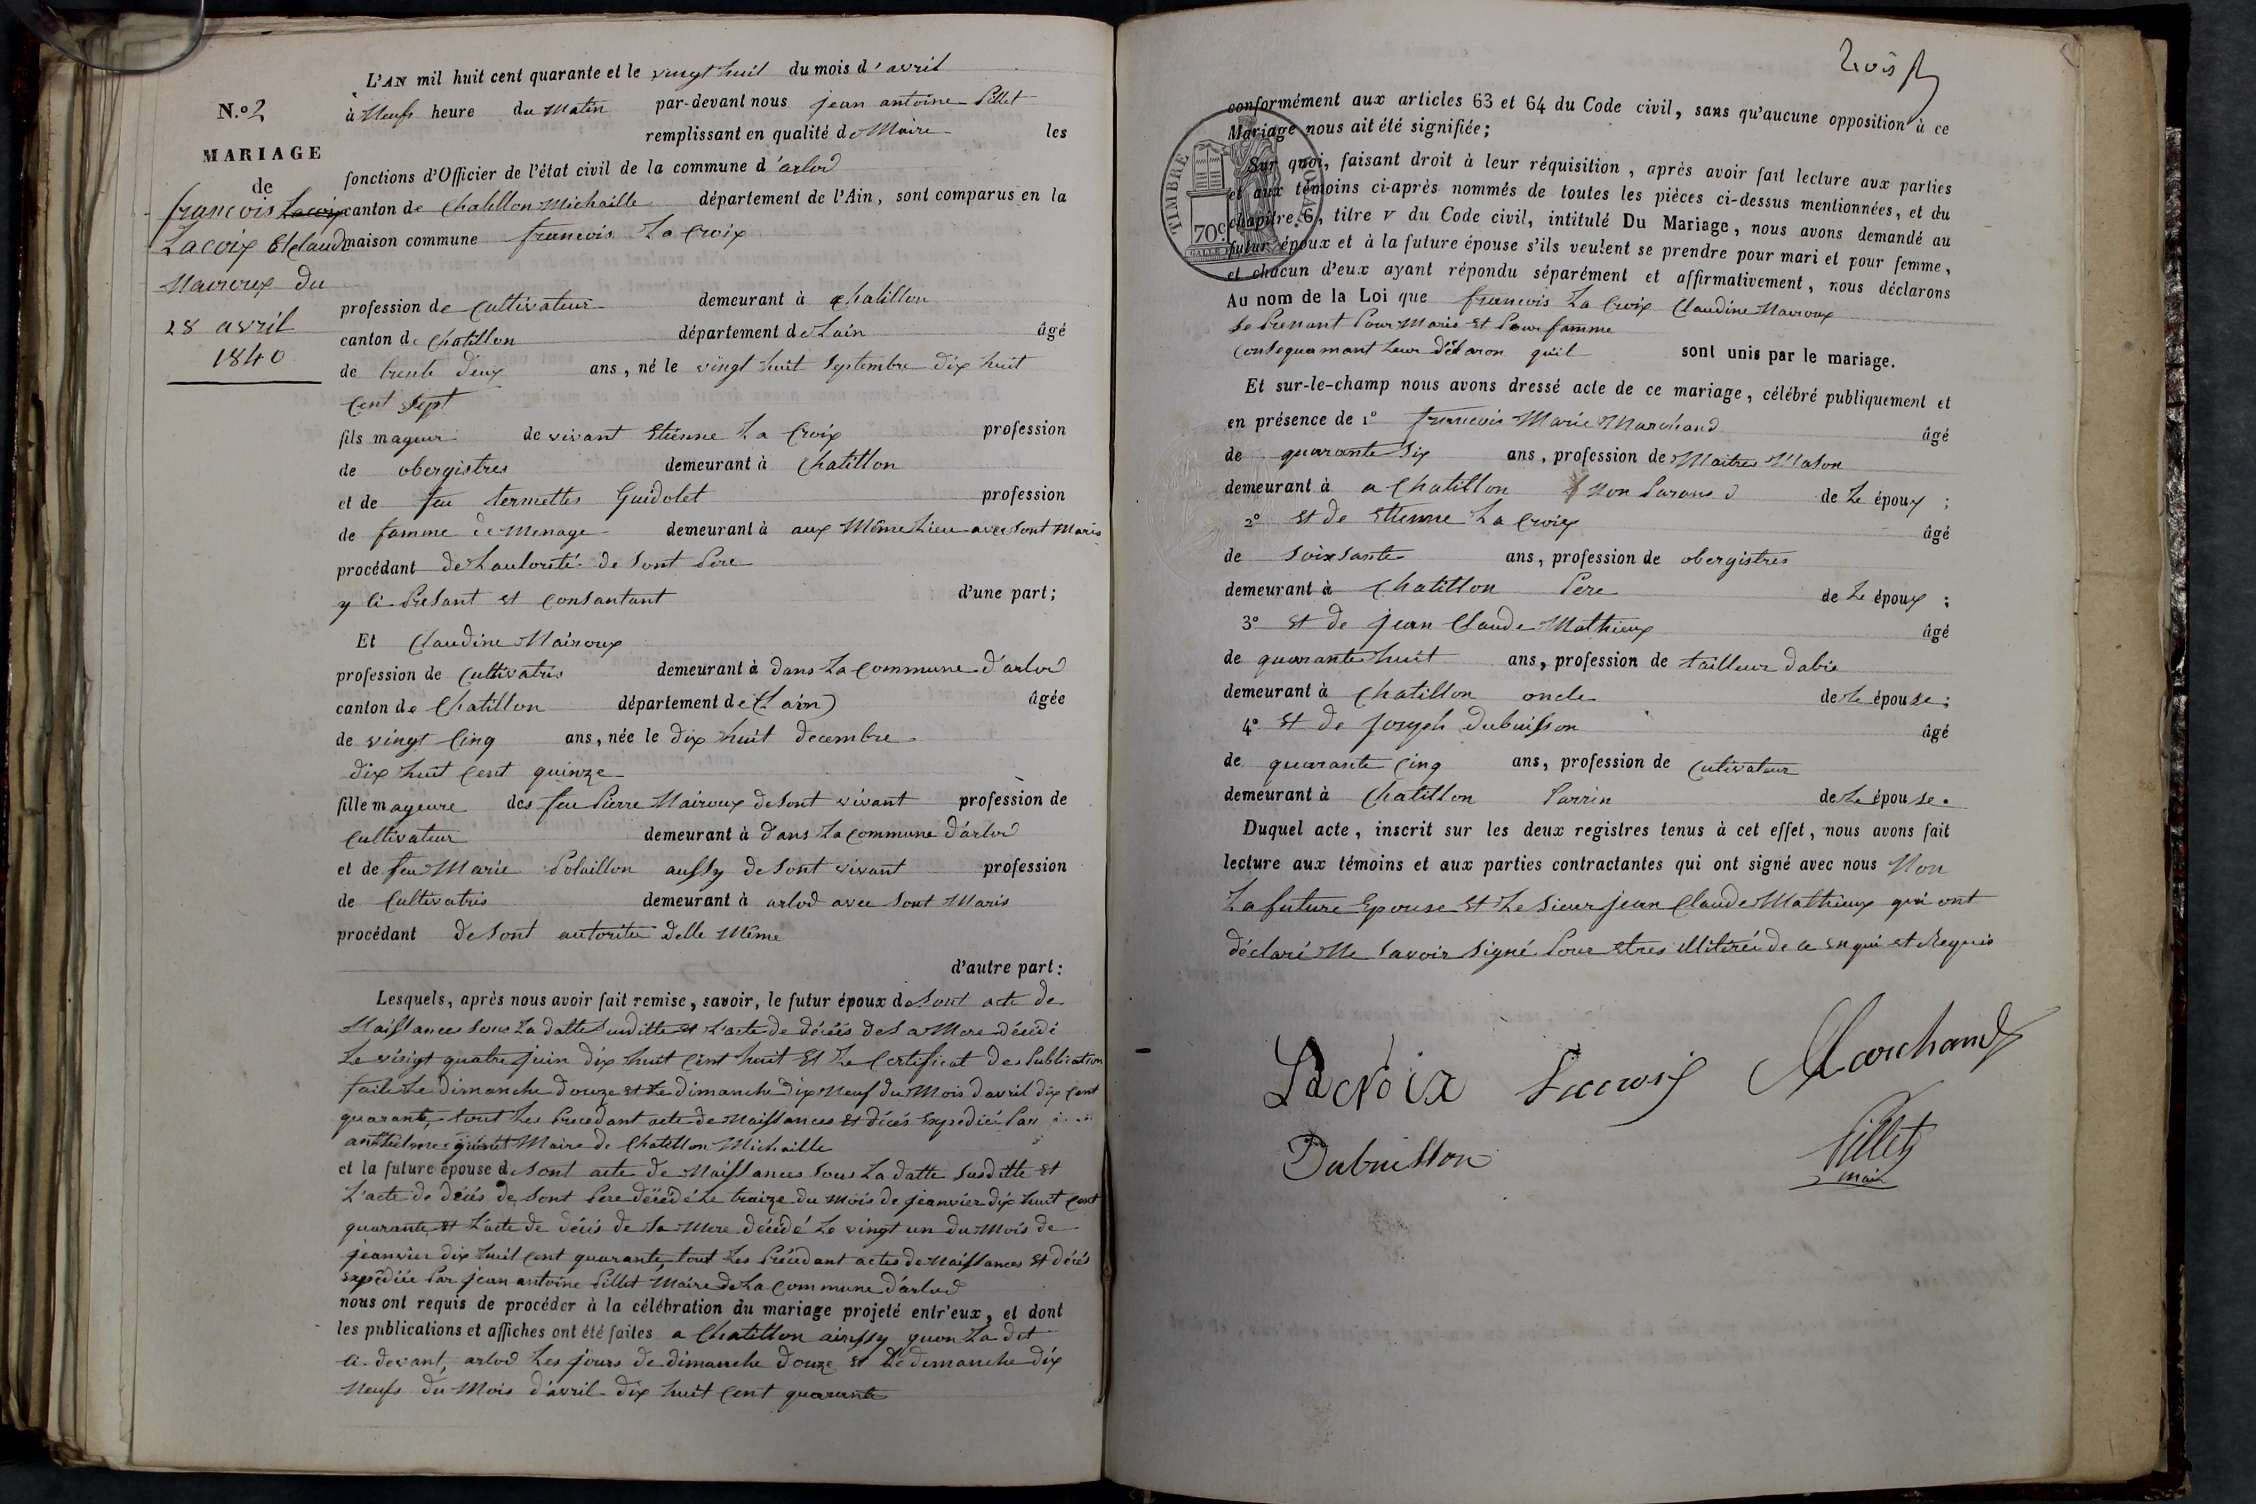 L'AN mil huit cent quarante et le vingt huit du mois d'avril
N.o 2
à Neufs heure du Matin par-devant nous jean antoine Pillet
remplissant en qualité de Maire les
MARIAGE
fonctions d'Officier de l'état civil de la commune d'arlod
de
françois Lacoix
canton de Chatillon Michaille département de l'Ain, sont comparus en la
Lacoix et claud
maison commune francois La Croix
Mairoux du
profession de Cultivateur demeurant à Chatillon
28 avril
canton de Chatillon département de Lain âgé
1840
de trente deux ans, né le vingt huit Septembre dix huit
Cent Sept
fils mageur de vivant Etienne La Croix profession
de obergistres demeurant à Chatillon
et de feu termettes Guidolet profession
de famme de Menage demeurant à aux Même Lieu avec Sont Maris
procédant de Lautorité de Sont Pere
y ci Present et Consantant d'une part;
Et Claudine Mairoux
profession de Cultivatris demeurant à dans La Commune d'arlod
canton de Chatillon département de (Lain) âgée
de vingt Cinq ans, née le dix huit decembre
dix huit Cent quinze
fille mageure des feu Pierre Mairoux de Sont vivant profession de
Cultivateur demeurant à dans La Commune d'arlod
et de feu Marie Polaillon aussy de Sont vivant profession
de Cultivatris demeurant à arlod avec Sont Maris
procédant de Sont autoritée delle Même
d'autre part:
Lesquels, après nous avoir fait remise, savoir, le futur époux de Sont acte de
Naissances Sous La datte Susditte et L'acte de décés de Sa Mere décédé
Le vingt quatre juin dix huit Cent huit Et Le Certificat des Publication
faite Le dimanche douze et Le dimanche dix Neuf du Mois davril dix Cent
quarante, tout Les Precedant acte de Naissances Et décés Expedié Par
Maire de Chatillon Michaille
et la future épouse de Sont acte de Naissances Sous La datte Susditte Et
L'acte de décés de Sont Pere décédé Le traize du Mois de jeanvier dix huit Cent
quarante, et L'acte de décés de Sa Mere décédé Le vingt un du Mois de
jeanvier dix huit Cent quarante, tout Les Précédant actes de Naissances Et décés
Expédiée Par jean antoine Pillet Maire de La Commune d'arlod
nous ont requis de procéder à la célébration du mariage projeté entr'eux, et dont
les publications et affiches ont été faites a Chatillon ainssy quon La dit
Ci-devant, arlod Les jours de dimanche douze Et de dimanche dix
Neufs du Mois d'avril dix huit Cent quarante
conformément aux articles 63 et 64 du Code civil, sans qu'aucune opposition à ce
Mariage nous ait été signifiée;
Sur quoi, faisant droit à leur réquisition, après avoir fait lecture aux parties
et aux témoins ci-après nommés de toutes les pièces ci-dessus mentionnées, et du
chapitre 6, titre v du Code civil, intitulé Du Mariage, nous avons demandé au
futur époux et à la future épouse s'ils veulent se prendre pour mari et pour femme,
et chacun d'eux ayant répondu séparément et affirmativement, nous déclarons
TIMBRE ROYAL
70c
Au nom de la Loi que francois La Croix Claudine Mairoux
Se Prenant Pour Maris Et Pour famme
Consequamant Leur déclaron quil sont unis par le mariage.
Et sur-le-champ nous avons dressé acte de ce mariage, célébré publiquement et
en présence de 1o francois Marie Marchand âgé
de quarante Six ans, profession de Maitres Mason
demeurant à a Chatillon Non Parans de Le époux ;
2o Et de Etienne La Croix âgé
de Soixsante ans, profession de obergistres
demeurant à Chatillon Pere de Le époux ;
3o Et de jean Claude Mathieux âgé
de quarante huit ans, profession de tailleur dabis
demeurant à Chatillon oncle de Le épouse ;
4o Et de joseph Dubuisson âgé
de quarante Cinq ans, profession de Cutivateur
demeurant à Chatillon Parrin de Le épouse.
Duquel acte, inscrit sur les deux registres tenus à cet effet, nous avons fait
lecture aux témoins et aux parties contractantes qui ont signé avec nous Non
La future Epouse Et Le Sieur jean Claude Mathieux qui ont
déclaré Ne Savoir Signé Pour Etres illitérée de ce Enqui Et Requis
Lacroix Lacroix Marchand
Dubuisson Pillet
maire